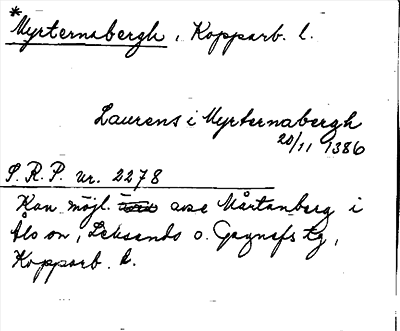 *
Myrternabergh, Kopparb. l.
Laurens i Myrternabergh
20/11 1386
S.R.P. nr. 2278
Kan möjl. avse Mårtanberg i
Åls sn, Leksands o. Gagnefs tg,
Kopparb. l.